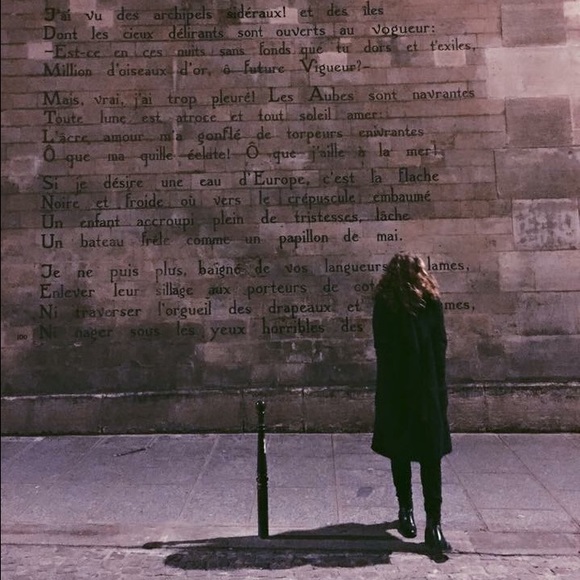 J'ai vu des archipels sidéraux! et des îles
Dont les cieux délirants sont ouverts au vogueur:
–Est-ce en ces nuits sans fonds que tu dors et t'exiles,
Million d'oiseaux d'or, ô future Vigueur?–
Mais, vrai, j'ai trop pleuré! Les Aubes sont navrantes
Toute lune est atroce et tout soleil amer:
L'âcre amour m'a gonflé de torpeurs enivrantes
Ô que ma quille éclate! Ô que j'aille à la mer!
Si je désire une eau d'Europe, c'est la flache
Noire et froide où vers le crépuscule embaumé
Un enfant accroupi plein de tristesses, lâche
Un bateau frêle comme un papillon de mai.
Je ne puis plus, baigné de vos langueurs lames,
Enlever leur sillage aux porteurs de cot
Ni traverser l'orgueil des drapeaux et mes,
100 Ni nager sous les yeux horribles des